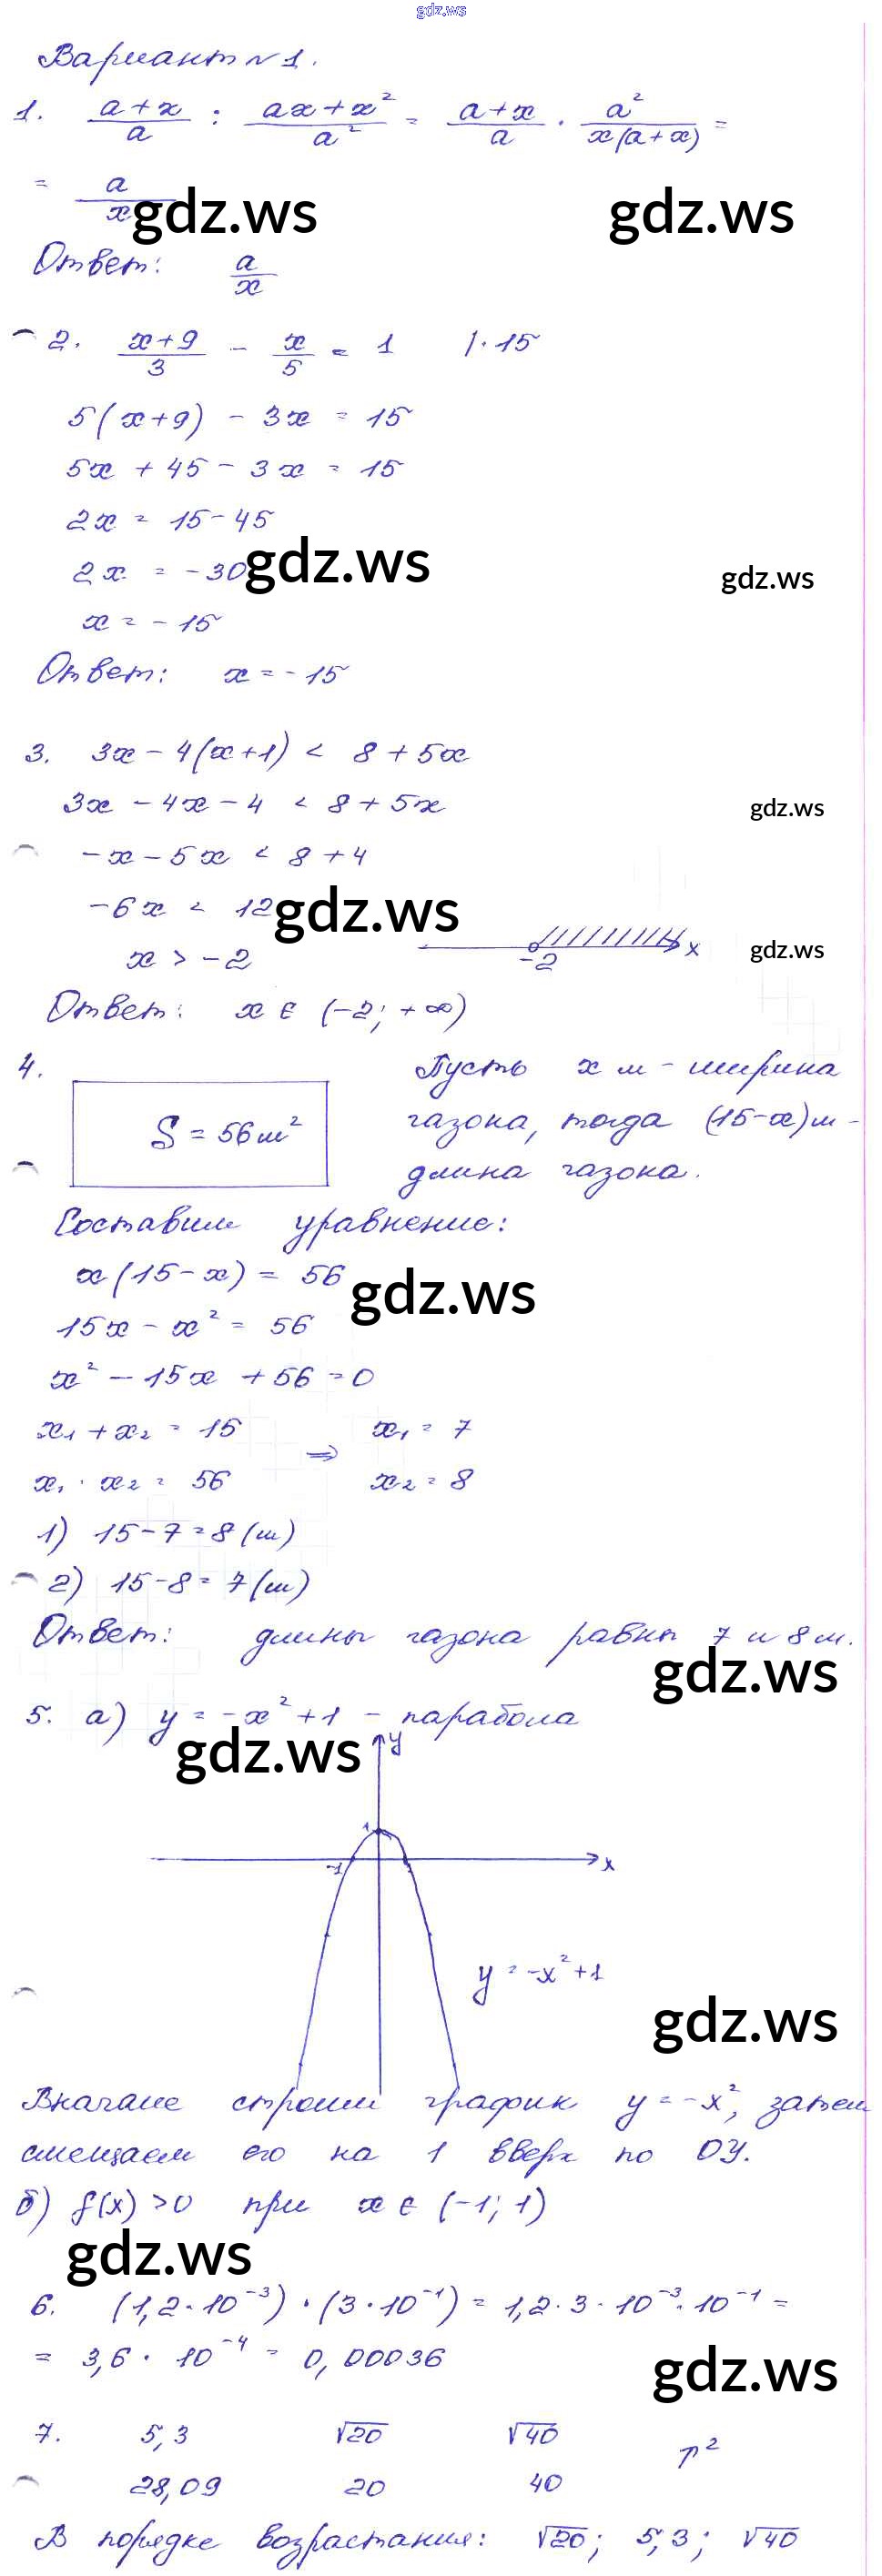 gdz.ws
Вариант №1.
1. (a+x)/a : (ax+x²)/a² = (a+x)/a · a²/(x(a+x)) =
= a/x gdz.ws gdz.ws
Ответ: a/x
2. (x+9)/3 - x/5 = 1 |·15
5(x+9) - 3x = 15
5x + 45 - 3x = 15
2x = 15-45
2x = -30 gdz.ws gdz.ws
x = -15
Ответ: x = -15
3. 3x - 4(x+1) < 8 + 5x
3x - 4x - 4 < 8 + 5x gdz.ws
-x - 5x < 8 + 4
-6x < 12 gdz.ws
x > -2 -2 x gdz.ws
Ответ: x ∈ (-2; +∞)
4. Пусть x м - ширина
S = 56 м² газона, тогда (15-x) м -
длина газона.
Составим уравнение:
x(15-x) = 56 gdz.ws
15x - x² = 56
x² - 15x + 56 = 0
x₁ + x₂ = 15 ⇒ x₁ = 7
x₁ · x₂ = 56 x₂ = 8
1) 15-7=8 (м)
2) 15-8=7 (м)
Ответ: длины газона равны 7 и 8 м.
gdz.ws
5. а) y = -x² + 1 - парабола
gdz.ws y
1
-1 1 x
y = -x² + 1
gdz.ws
Вначале строим график y = -x², затем
смещаем его на 1 вверх по OY.
б) f(x) > 0 при x ∈ (-1; 1)
gdz.ws
6. (1,2·10⁻³)·(3·10⁻¹) = 1,2·3·10⁻³·10⁻¹ =
= 3,6·10⁻⁴ = 0,00036 gdz.ws
7. 5,3 √20 √40 ↑²
28,09 20 40
В порядке возрастания: √20; 5,3; √40